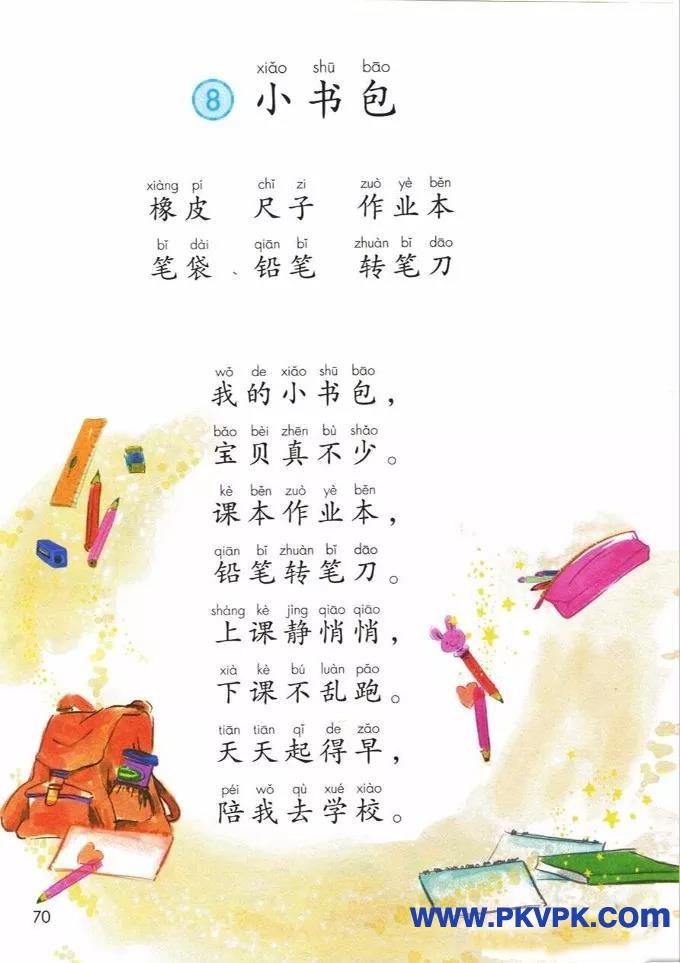 xiǎo shū bāo
8 小书包
xiàng pí chǐ zi zuò yè běn
橡皮 尺子 作业本
bǐ dài qiān bǐ zhuàn bǐ dāo
笔袋、铅笔 转笔刀
wǒ de xiǎo shū bāo
我的小书包，
bǎo bèi zhēn bù shǎo
宝贝真不少。
kè běn zuò yè běn
课本作业本，
qiān bǐ zhuàn bǐ dāo
铅笔转笔刀。
shàng kè jìng qiāo qiāo
上课静悄悄，
xià kè bú luàn pǎo
下课不乱跑。
tiān tiān qǐ de zǎo
天天起得早，
péi wǒ qù xué xiào
陪我去学校。
70
www.PKVPK.com